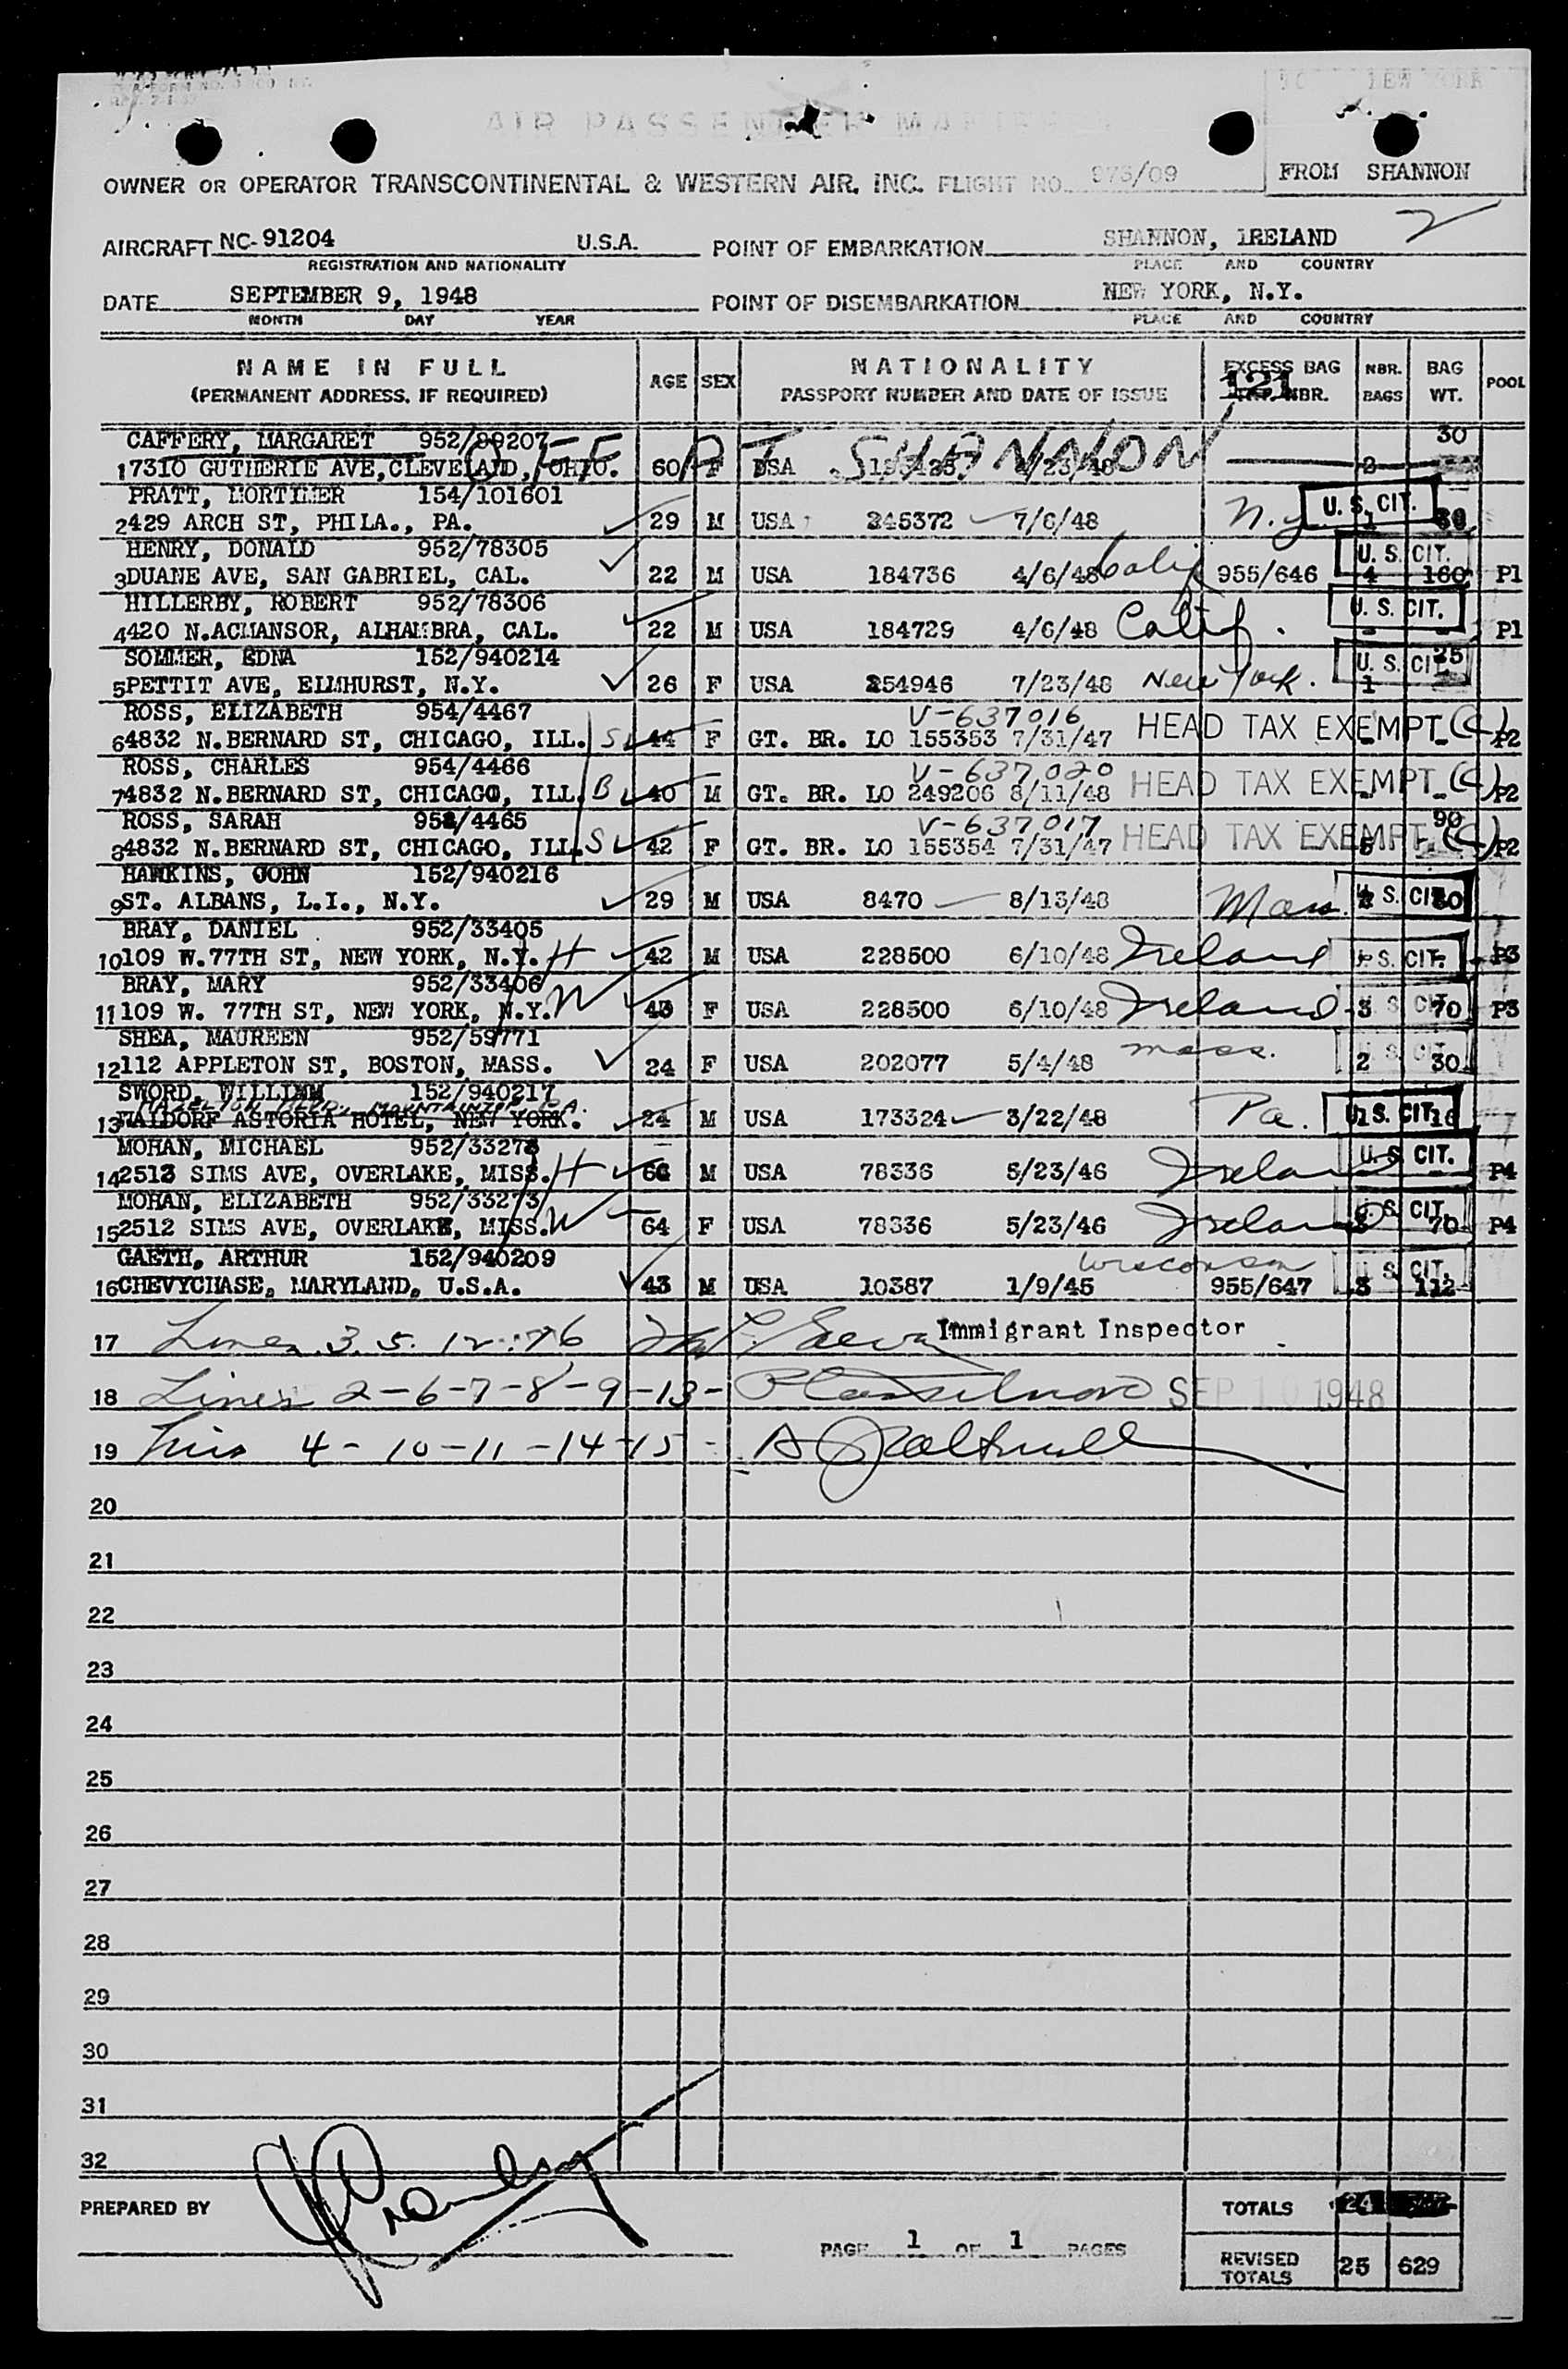 AIR PASSENGER MANIFEST
NEW YORK
FROM SHANNON
OWNER OR OPERATOR TRANSCONTINENTAL & WESTERN AIR. INC. FLIGHT NO. 975/09
2
AIRCRAFT NC-91204 U.S.A. POINT OF EMBARKATION SHANNON, IRELAND
REGISTRATION AND NATIONALITY PLACE AND COUNTRY
DATE SEPTEMBER 9, 1948 POINT OF DISEMBARKATION NEW YORK, N.Y.
MONTH DAY YEAR PLACE AND COUNTRY
NAME IN FULL AGE SEX NATIONALITY EXCESS BAG NBR. BAG POOL
(PERMANENT ADDRESS. IF REQUIRED) PASSPORT NUMBER AND DATE OF ISSUE 121 NBR. BAGS WT.
CAFFERY, MARGARET 952/89207 30
OFF AT SHANNON
1 7310 GUTHERIE AVE, CLEVELAND, OHIO. 60 F USA /23/48 2
PRATT, MORTIMER 154/101601
2 429 ARCH ST, PHILA., PA. 29 M USA 245372 7/6/48 N.Y. U. S. CIT. 1
HENRY, DONALD 952/78305
3 DUANE AVE, SAN GABRIEL, CAL. 22 M USA 184736 4/6/48 Calif 955/646 U. S. CIT. 4 160 P1
HILLERBY, ROBERT 952/78306
4 420 N.ACMANSOR, ALHAMBRA, CAL. 22 M USA 184729 4/6/48 Calif. U. S. CIT. - - P1
SOMMER, EDNA 152/940214
5 PETTIT AVE, ELMHURST, N.Y. 26 F USA 254946 7/23/48 New York. U. S. CIT. 1 25
ROSS, ELIZABETH 954/4467 V-637016
6 4832 N.BERNARD ST, CHICAGO, ILL. S 44 F GT. BR. LO 155353 7/31/47 HEAD TAX EXEMPT (C) P2
ROSS, CHARLES 954/4466 V-637020
7 4832 N.BERNARD ST, CHICAGO, ILL. B 40 M GT. BR. LO 249206 8/11/48 HEAD TAX EXEMPT (C) P2
ROSS, SARAH 954/4465 V-637017 90
8 4832 N.BERNARD ST, CHICAGO, ILL. S 42 F GT. BR. LO 155354 7/31/47 HEAD TAX EXEMPT (C) P2
HAWKINS, JOHN 152/940216
9 ST. ALBANS, L.I., N.Y. 29 M USA 8470 8/13/48 Mass. U. S. CIT.
BRAY, DANIEL 952/33405
10 109 W.77TH ST, NEW YORK, N.Y. H 42 M USA 228500 6/10/48 Ireland U. S. CIT. P3
BRAY, MARY 952/33406
11 109 W. 77TH ST, NEW YORK, N.Y. W 43 F USA 228500 6/10/48 Ireland 3 U. S. CIT. 70 P3
SHEA, MAUREEN 952/59771
12 112 APPLETON ST, BOSTON, MASS. 24 F USA 202077 5/4/48 mass. U. S. CIT. 2 30
SWORD, WILLIAM 152/940217
13 WALDORF ASTORIA HOTEL, NEW YORK. 24 M USA 173324 3/22/48 Pa. U. S. CIT. 1 16
MOHAN, MICHAEL 952/33278
14 2513 SIMS AVE, OVERLAKE, MISS. H 66 M USA 78336 5/23/46 Ireland U. S. CIT. P4
MOHAN, ELIZABETH 952/33273
15 2512 SIMS AVE, OVERLAKE, MISS. W 64 F USA 78336 5/23/46 Ireland U. S. CIT. 70 P4
GAETH, ARTHUR 152/940209 Wisconsin
16 CHEVYCHASE, MARYLAND, U.S.A. 43 M USA 10387 1/9/45 955/647 U. S. CIT. 3 112
17 Lines 3. 5. 12 16 Immigrant Inspector
18 Lines 2-6-7-8-9-13- SEP 10 1948
19 Lines 4-10-11-14-15-
20
21
22
23
24
25
26
27
28
29
30
31
32
PREPARED BY
PAGE 1 OF 1 PAGES
TOTALS 24
REVISED TOTALS 25 629